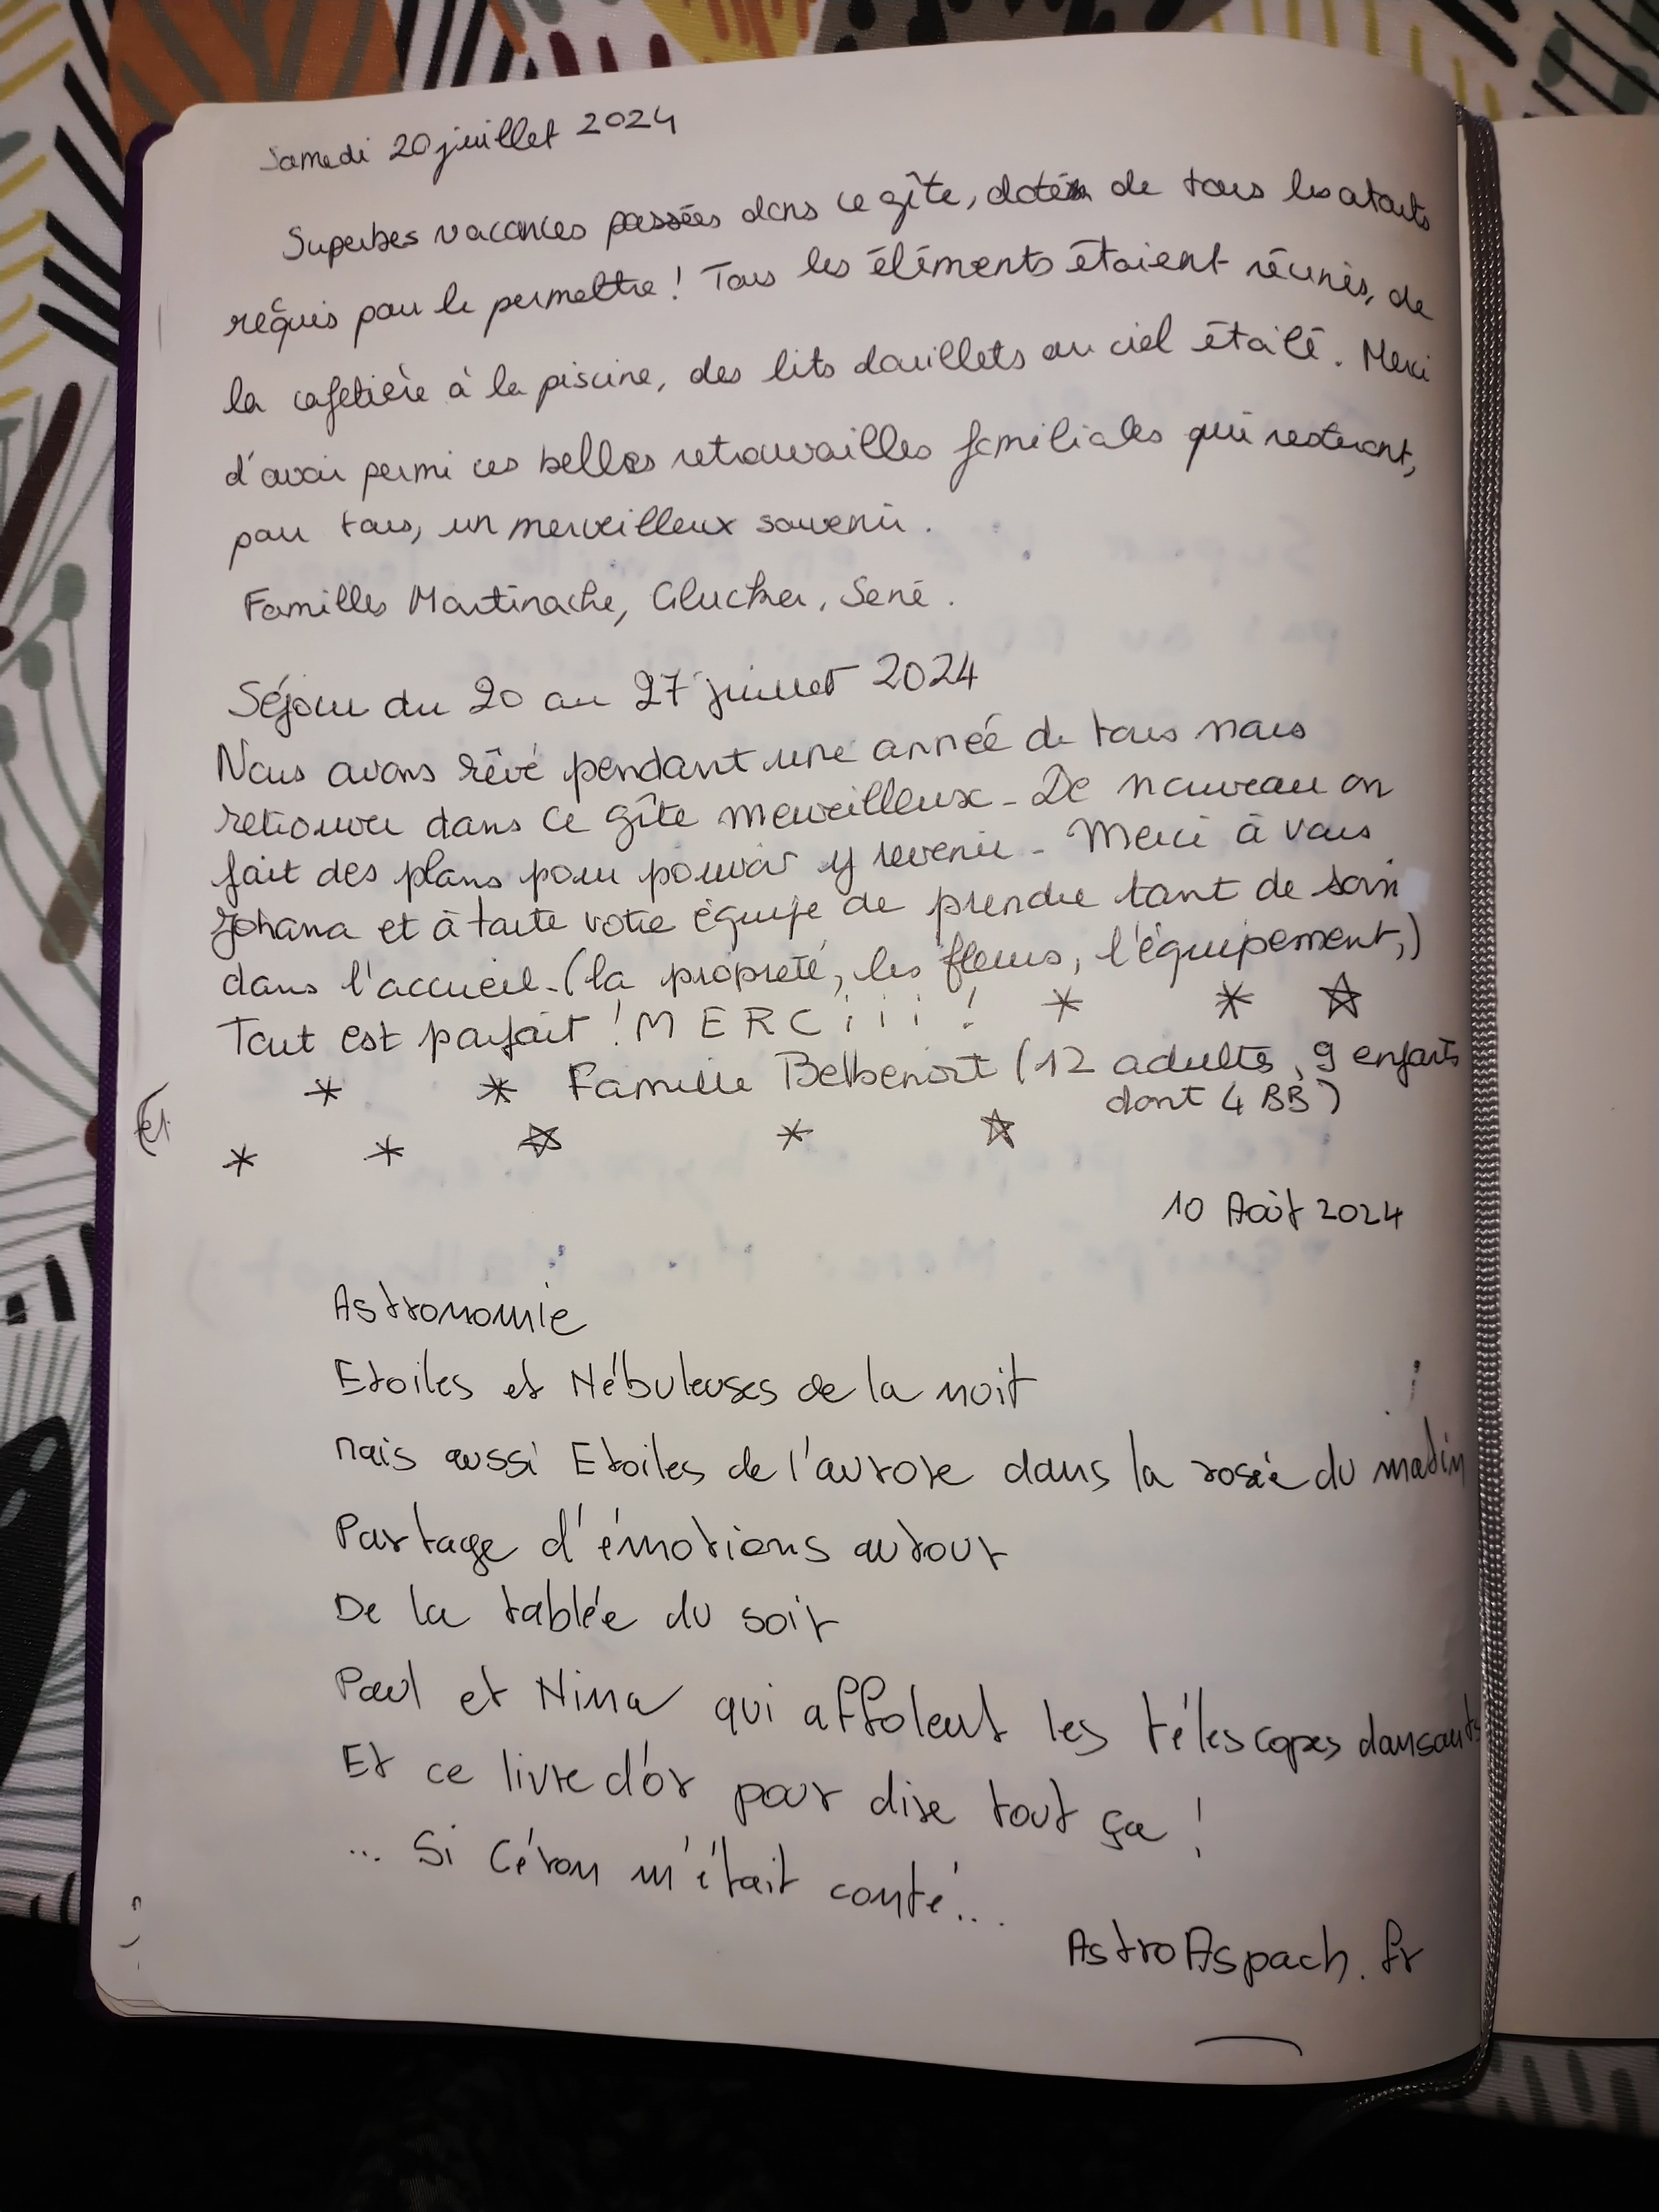 Samedi 20 juillet 2024
Superbes vacances passées dans ce gîte, doté de tous les atouts
requis pour le permettre ! Tous les éléments étaient réunis, de
la cafetière à la piscine, des lits douillets au ciel étoilé. Merci
d'avoir permi ces belles retrouvailles familiales qui resteront,
pour tous, un merveilleux souvenir.
Familles Martinache, Glucker, Sené.
Séjour du 20 au 27 juillet 2024
Nous avons rêvé pendant une année de tous nous
retrouver dans ce gîte merveilleux - De nouveau on
fait des plans pour pouvoir y revenir - Merci à vous
Johana et à toute votre équipe de prendre tant de soin
dans l'accueil - (la propreté, les fleurs, l'équipement,)
Tout est parfait ! MERCiii !
Famille Belbenoit (12 adultes, 9 enfants
dont 4 BB)
10 Août 2024
Astronomie
Etoiles et Nébuleuses de la nuit
Mais aussi Etoiles de l'aurore dans la rosée du matin
Partage d'émotions autour
De la tablée du soir
Paul et Nina qui affolent les télescopes dansants
Et ce livre d'or pour dire tout ça !
... Si Céron m'était conté...
AstroAspach.fr